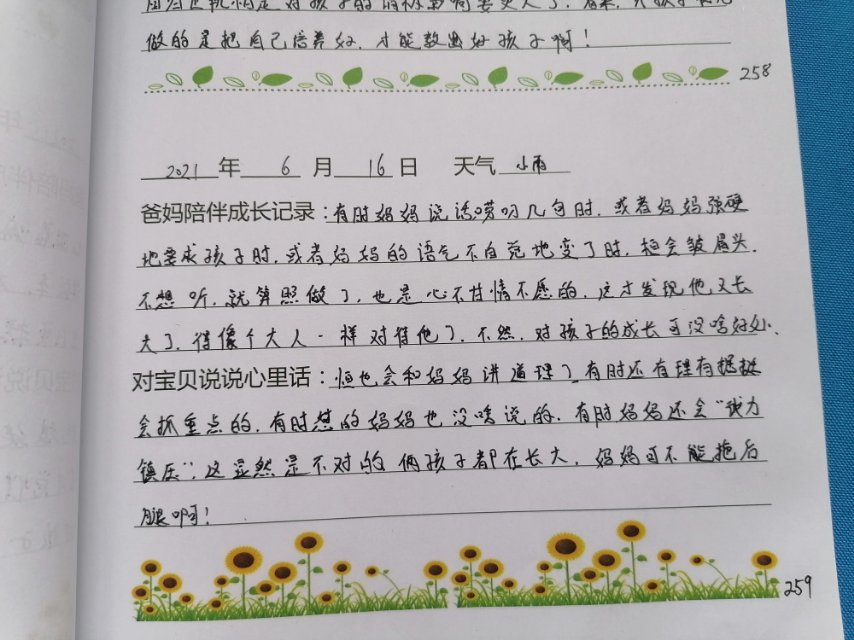 做的是把自己培养好，才能教出好孩子啊！
258
2021 年 6 月 16 日 天气 小雨
爸妈陪伴成长记录：有时妈妈说话唠叨几句时，或者妈妈强硬
地要求孩子时，或者妈妈的语气不自觉地变了时，恒会皱眉头，
不想听，就算照做了，也是心不甘情不愿的，这才发现他又长
大了，得像个大人一样对待他了，不然，对孩子的成长可没啥好处、
对宝贝说说心里话：恒也会和妈妈讲道理了，有时还有理有据挺
会抓重点的，有时怼的妈妈也没啥说的，有时妈妈还会“武力
镇压”，这显然是不对的，俩孩子都在长大，妈妈可不能拖后
腿啊！
259